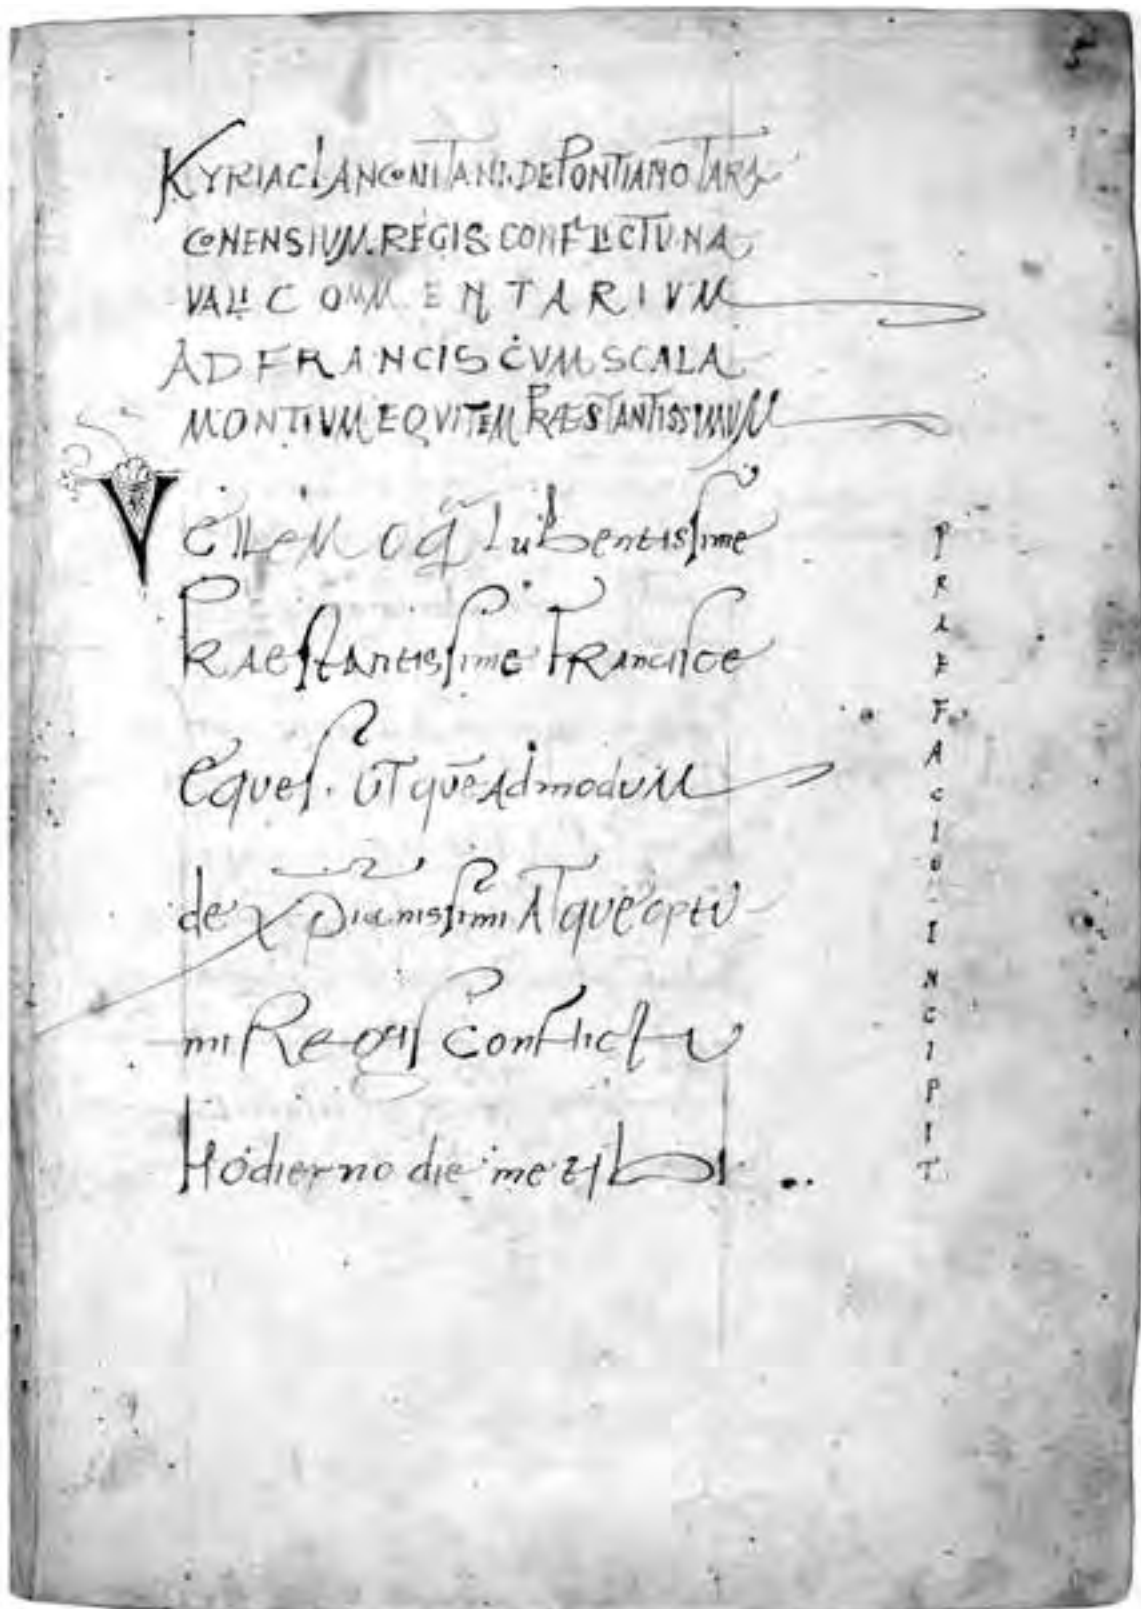 KYRIACI ANCONITANI. DE PONTIANO TARA
CONENSIUM. REGIS CONFLICTU NA
VALI COMMENTARIVM
AD FRANCISCVM SCALA
MONTIVM EQVITEM PRÆSTANTISSIMUM
VELLEM O q̃ Lubentissime
PRAestantissime FRancisce
eques. UT quēAdmodVM
de xp̄ianissimi ATque optu
mi Regis Conflictu
Hodierno die me tibi
PRAEFACIO INCIPIT